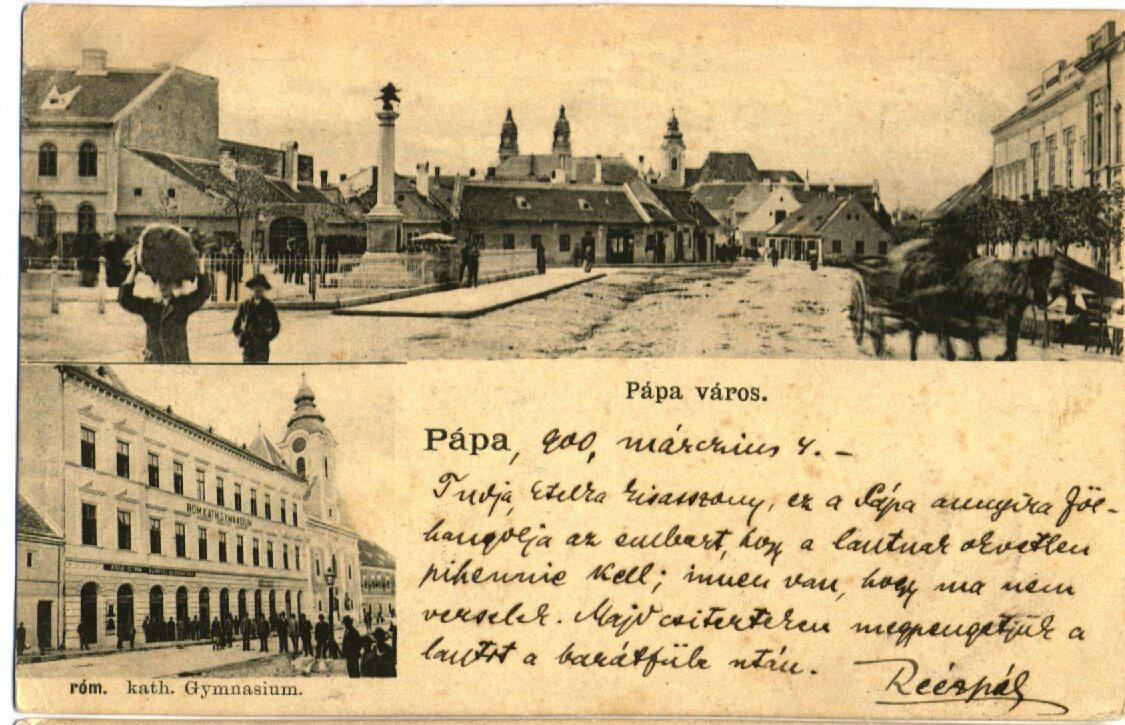 Pápa város.
Pápa, 900, márczius 4. –
Tudja, Etelka kisasszony, ez a Pápa annyira föl-
hangolja az embert, hogy a lantnak okvetlen
pihennie kell; innen van, hogy ma nem
verselek. Majd csütörtökön megpengetjük a
lantot a barátfüle után.
ROM.KATH.GYMNASIUM
róm. kath. Gymnasium.